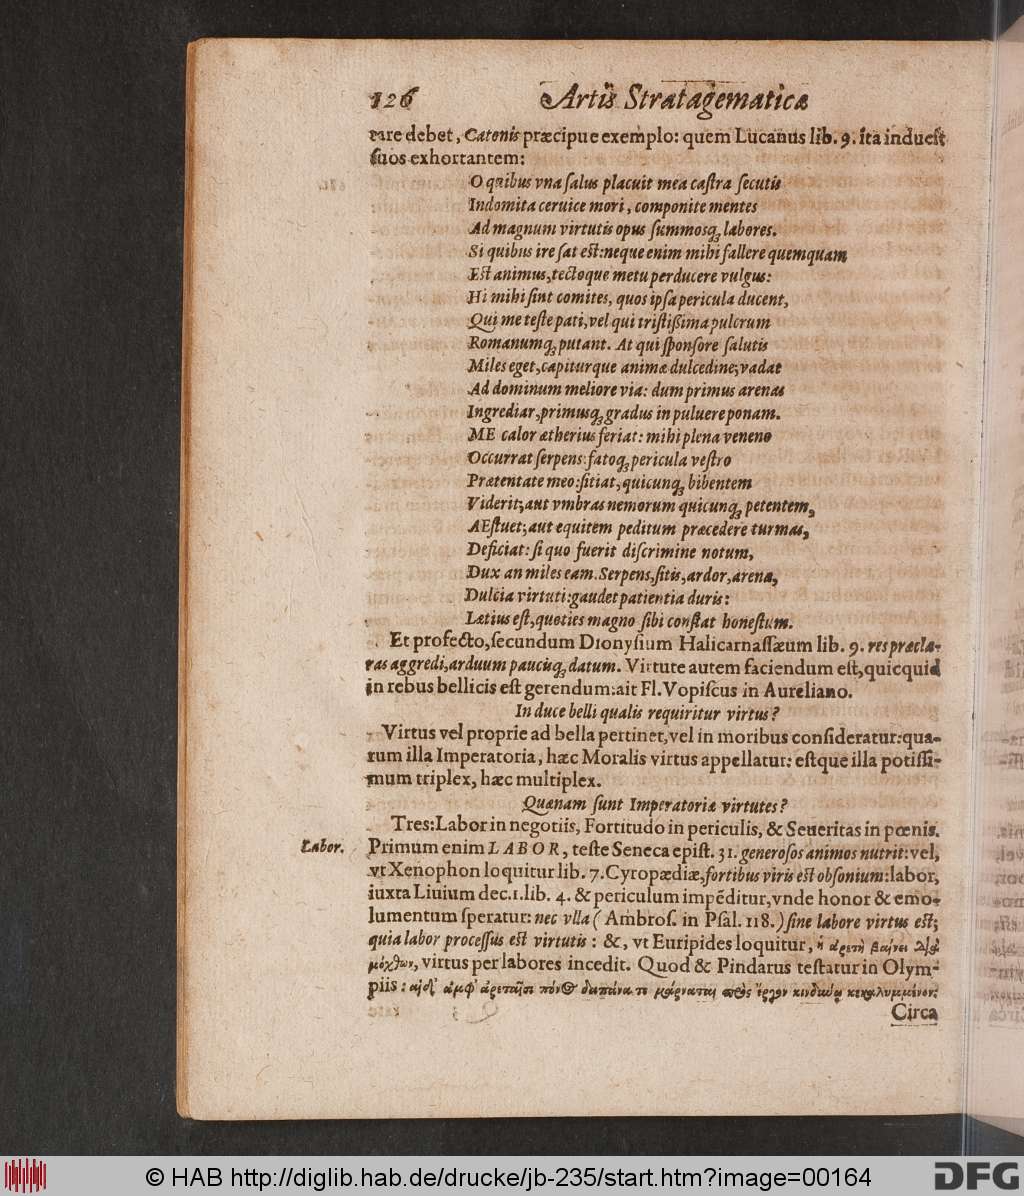 126 Artis Stratagematicæ
tare debet, Catonis præcipue exemplo: quem Lucanus lib. 9. ita inducit
suos exhortantem:
O quibus vna salus placuit mea castra secutis
Indomita ceruice mori, componite mentes
Ad magnum virtutis opus summosq; labores.
Si quibus ire sat est: neque enim mihi fallere quemquam
Est animus, tectoque metu perducere vulgus:
Hi mihi sint comites, quos ipsa pericula ducent,
Qui me teste pati, vel qui tristißima pulcrum
Romanumq; putant. At qui sponsore salutis
Miles eget, capiturque animæ dulcedine; vadat
Ad dominum meliore via: dum primus arenas
Ingrediar, primusq; gradus in puluere ponam.
ME calor ætherius feriat: mihi plena veneno
Occurrat serpens: fatoq; pericula vestro
Prætentate meo: sitiat, quicunq; bibentem
Viderit; aut vmbras nemorum quicunq; petentem,
AEstuet; aut equitem peditum præcedere turmas,
Deficiat: si quo fuerit discrimine notum,
Dux an miles eam. Serpens, sitis, ardor, arena,
Dulcia virtuti: gaudet patientia duris:
Lætius est, quoties magno sibi constat honestum.
Et profecto, secundum Dionysium Halicarnassæum lib. 9. res præcla-
ras aggredi, arduum paucisq; datum. Virtute autem faciendum est, quicquid
in rebus bellicis est gerendum: ait Fl. Vopiscus in Aureliano.
In duce belli qualis requiritur virtus?
Virtus vel proprie ad bella pertinet, vel in moribus consideratur: qua-
rum illa Imperatoria, hæc Moralis virtus appellatur: estque illa potissi-
mum triplex, hæc multiplex.
Quænam sunt Imperatoriæ virtutes?
Tres: Labor in negotiis, Fortitudo in periculis, & Seueritas in pœnis.
Labor. Primum enim LABOR, teste Seneca epist. 31. generosos animos nutrit: vel,
vt Xenophon loquitur lib. 7. Cyropædiæ, fortibus viris est obsonium: labor,
iuxta Liuium dec. 1. lib. 4. & periculum impēditur, vnde honor & emo-
lumentum speratur: nec vlla (Ambros. in Psal. 118.) sine labore virtus est;
quia labor processus est virtutis: &, vt Euripides loquitur, ἡ ἀρετὴ βαίνει διὰ
μόχθων, virtus per labores incedit. Quod & Pindarus testatur in Olym-
piis: αἰεὶ δ' ἀμφ' ἀρεταῖσι πόνος δαπάνα τε μάρναται πρὸς ἔργον κινδύνῳ κεκαλυμμένον:
Circa
© HAB http://diglib.hab.de/drucke/jb-235/start.htm?image=00164
DFG